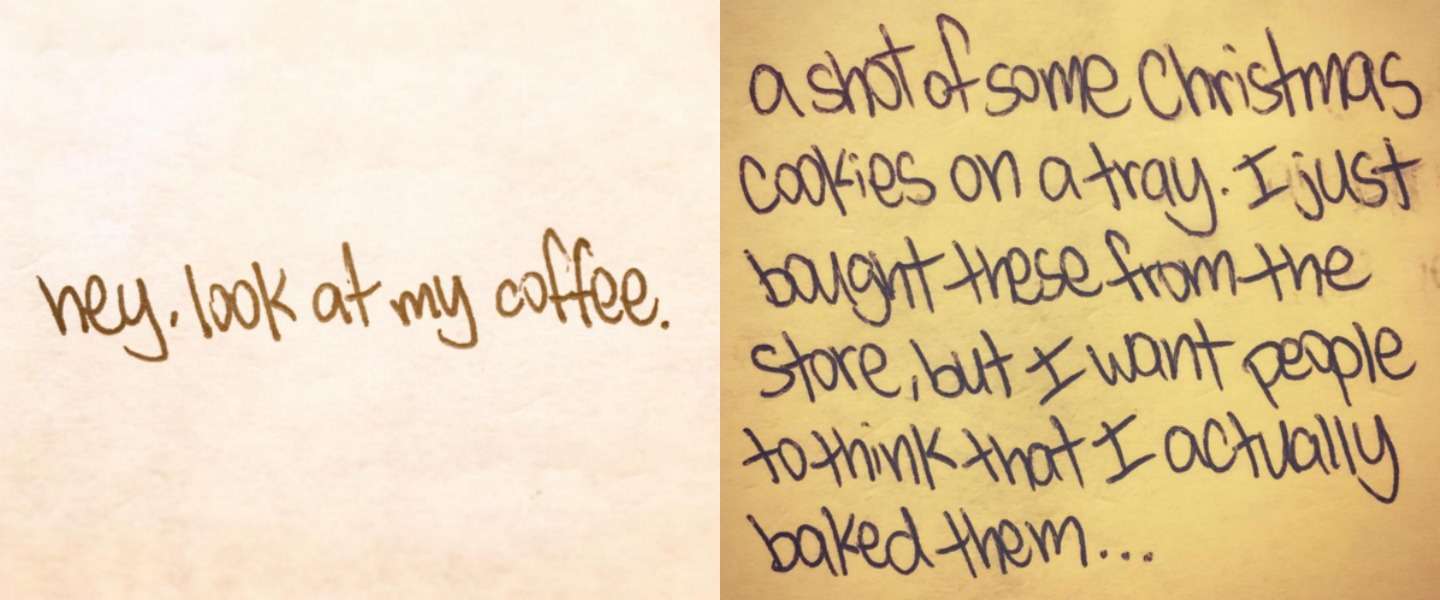 hey. look at my coffee.
a shot of some Christmas
cookies on a tray. I just
bought these from the
store, but I want people
to think that I actually
baked them...